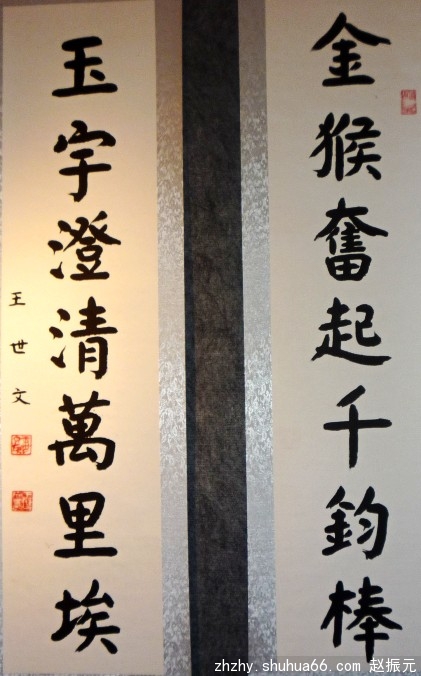 金猴奮起千鈞棒
玉宇澄清萬里埃
王世文
zhzhy.shuhua66.com 赵振元